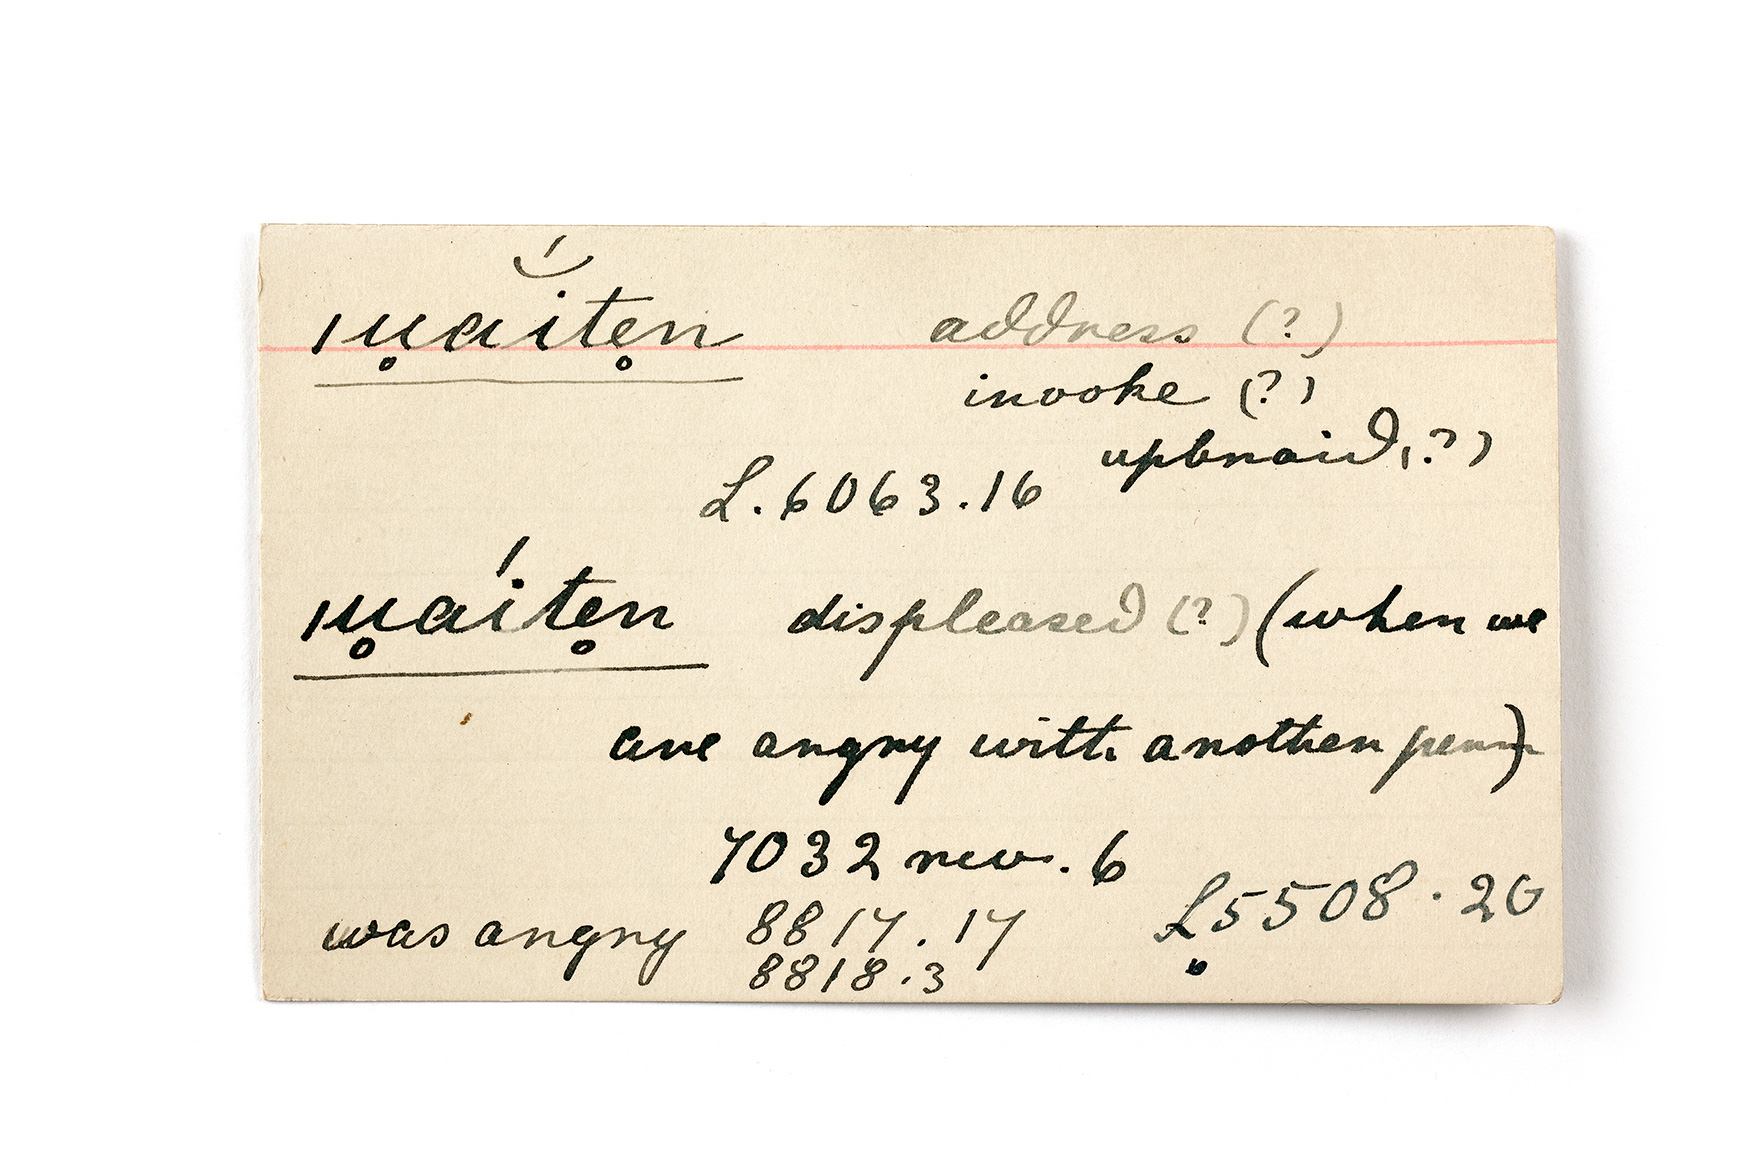 |u̥aĭ́te̥n address (?)
invoke (?)
upbraid (?)
L. 6063.16
|u̥aíte̥n displeased (?) (when we
are angry with another person)
7032 rev. 6
L 5508.20
was angry 8817.17
8818.3